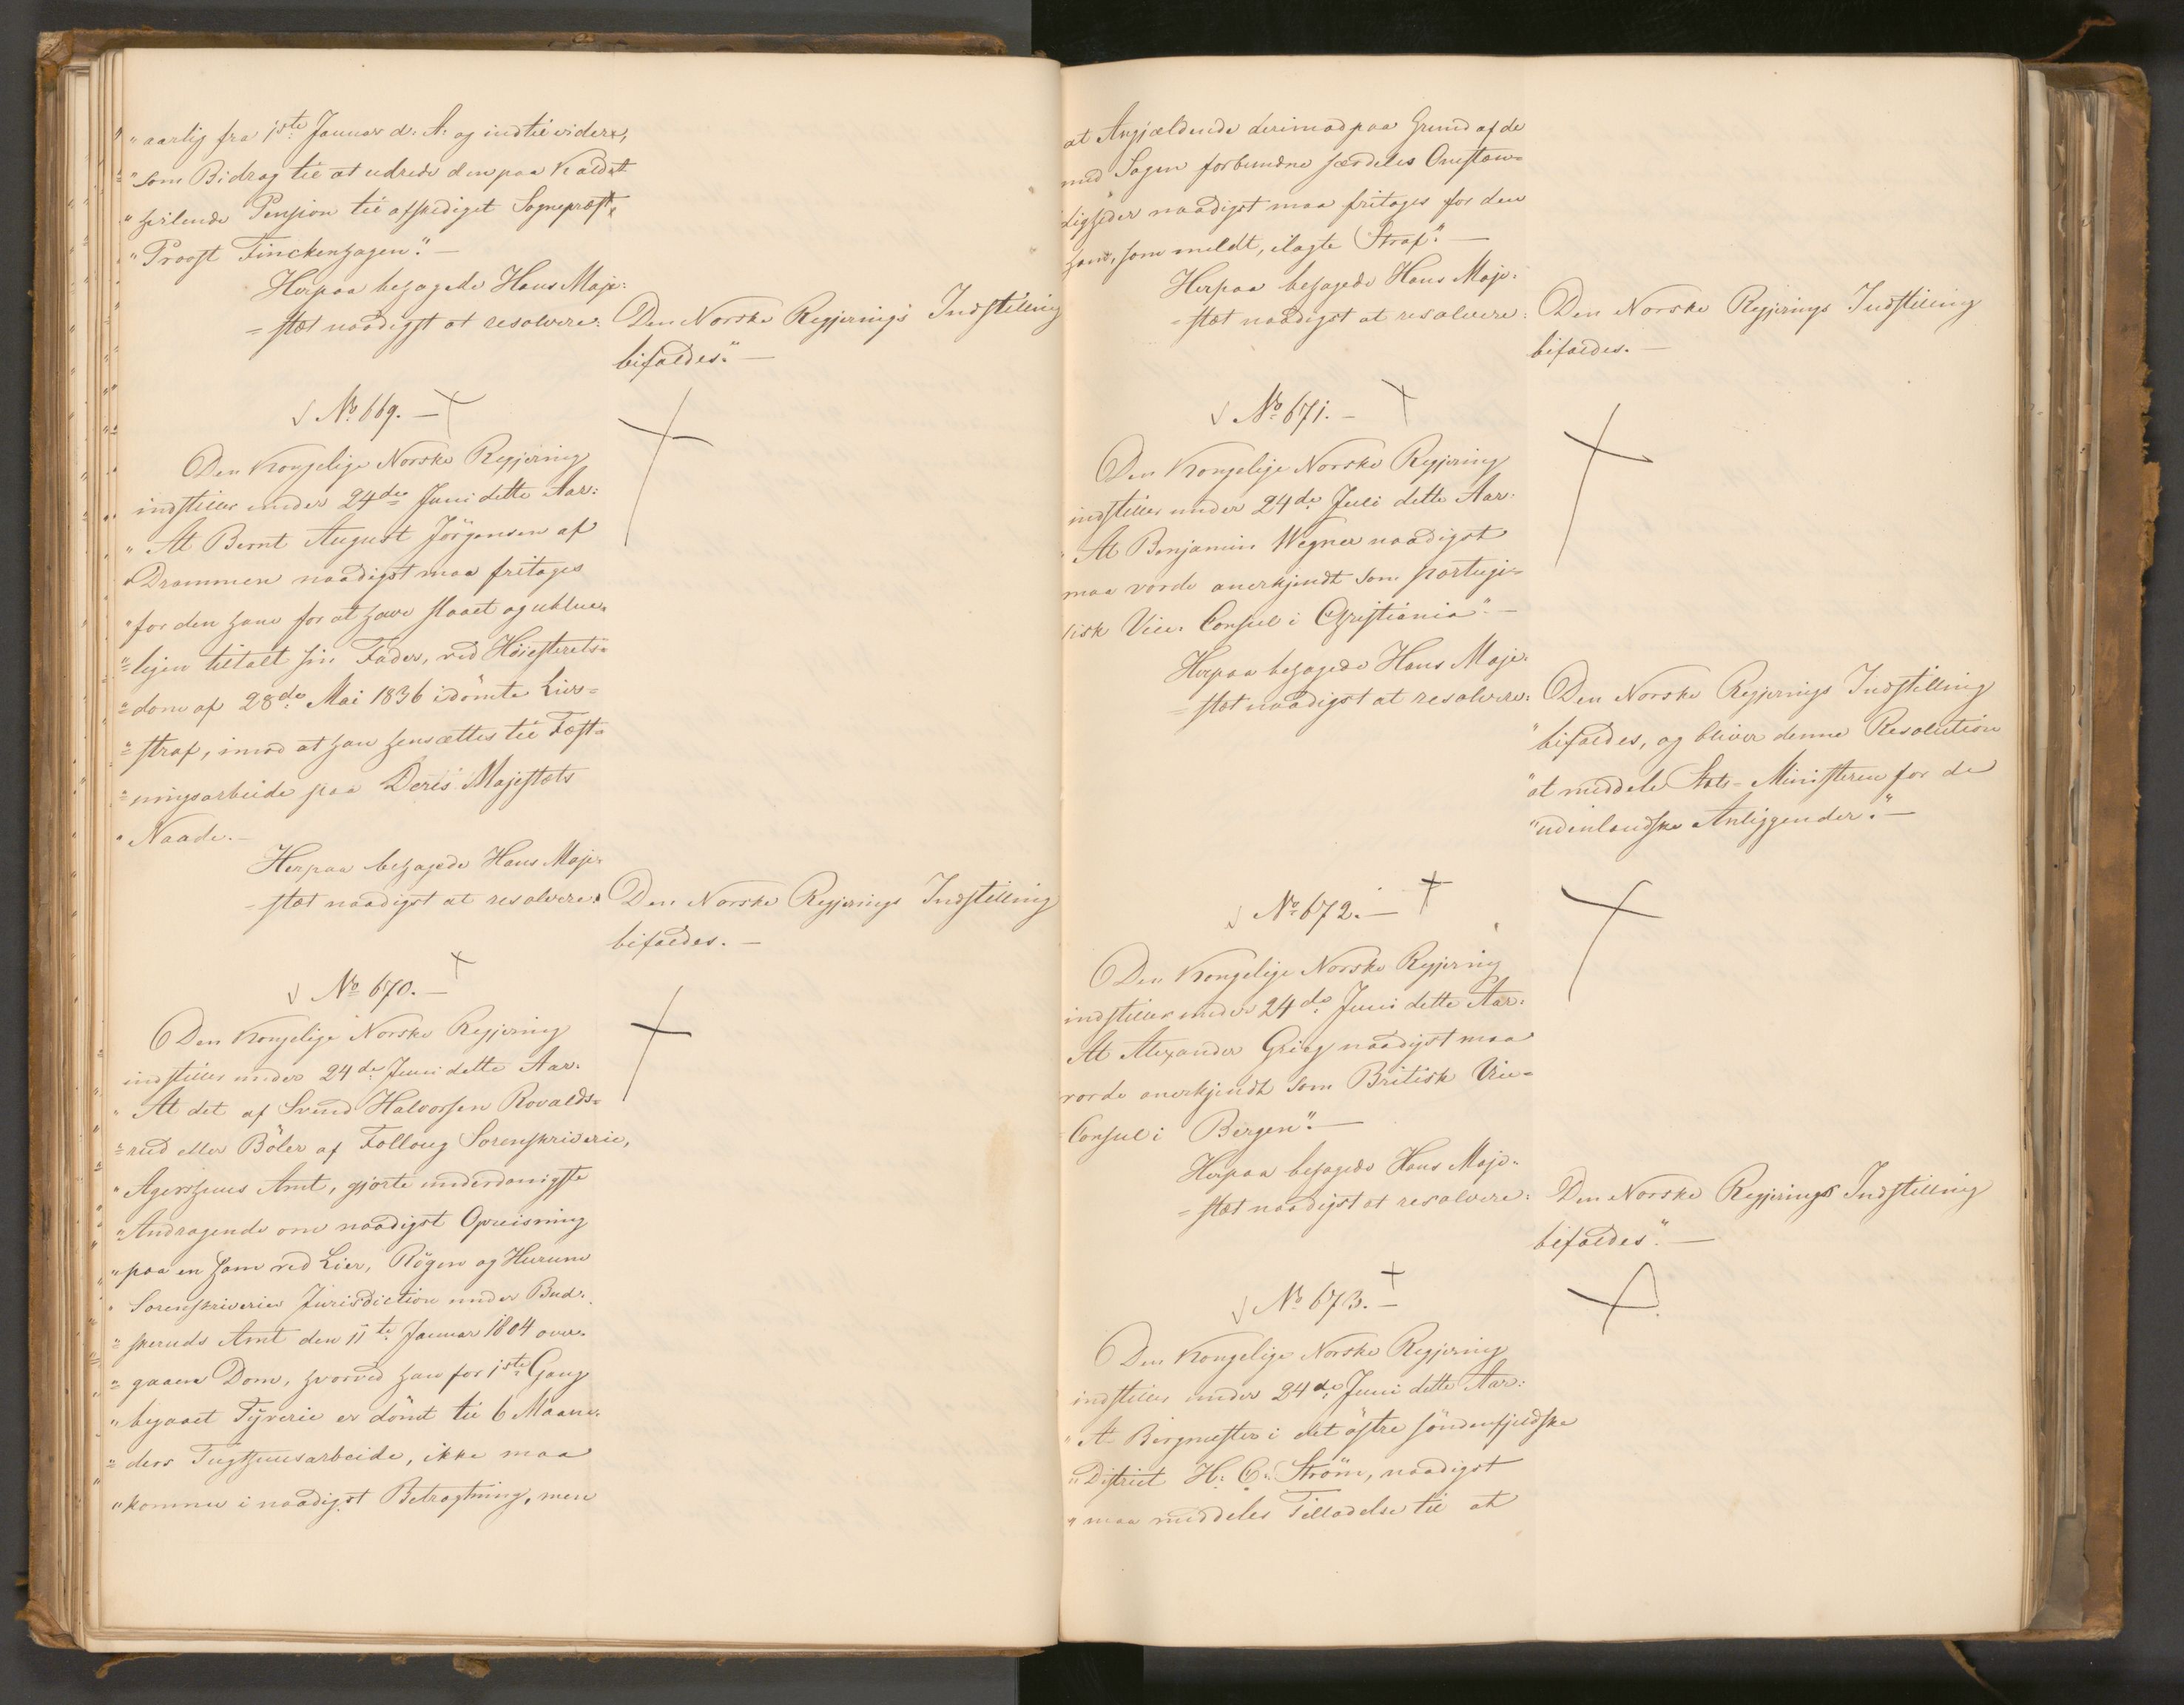 "aarlig fra 1ste Januar d. A. og indtil videre,
"som Bidrag til at udrede den paa Kaldet
"hvilende Pension til afskediget Sognepræst,
"Provst Finckenhagen". —
Herpaa behagede Hans Maje-
=stæt naadigst at resolvere: Den Norske Regjerings Indstilling
bifaldes." —
√ No 669. —
Den Kongelige Norske Regjering
indstiller under 24de Juni dette Aar:
"At Bernt August Jörgensen af
"Drammen naadigst maa fritages
"for den ham for at have slaaet og utilbør-
"=ligen tiltalt sin Fader, ved Höiesterets-
"=dom af 28de Mai 1836 idömte Livs=
"=straf, imod at han hensættes til Fæst=
"=ningsarbeide paa Deres Majestæts
"Naade. —
Herpaa behagede Hans Maje-
=stæt naadigst at resolvere: Den Norske Regjerings Indstilling
bifaldes. —
√ No 670. —
Den Kongelige Norske Regjering
indstiller under 24de Juni dette Aar.
"At det af Svend Halvorsen Rovalds=
"=rud eller Böler af Folloug Sorenskriverie,
"Agershuus Amt, gjorte underdanigste
"Andragende om naadigst Opreisning
"paa en ham ved Lier, Rögen og Hurum
"Sorenskriveries Jurisdiction under Bud-
"=skeruds Amt den 11te Januar 1804 over-
"=gaaen Dom, hvorved han for 1ste Gang
"begaaet Tyverie er dömt til 6 Maane-
"=ders Tugthuusarbeide, ikke maa
"komme i naadigst Betragtning, men
at Angjældende derimod paa Grund af de
med Sagen forbundne særdeles Omstæn=
digheder naadigst maa fritages for den
ham, som meldt, ilagte Straf". —
Herpaa behagede Hans Maje-
=stæt naadigst at resolvere: Den Norske Regjerings Indstilling
bifaldes. —
√ No 671. —
Den Kongelige Norske Regjering
indstiller under 24de Juli dette Aar.
"At Benjamin Wegner naadigst
maa vorde anerkjendt som portugi=
sisk Vice-Consul i Christiania". —
Herpaa behagede Hans Maje-
=stæt naadigst at resolvere: Den Norske Regjerings Indstilling
"bifaldes, og bliver denne Resolution
"at meddele Stats-Ministeren for de
"udenlandske Anliggender." —
√ No 672. —
Den Kongelige Norske Regjering
indstiller under 24de Juni dette Aar.
At Alexander Grieg naadigst maa
vorde anerkjendt som Britisk Vice=
Consul i Bergen". —
Herpaa behagede Hans Maje-
=stæt naadigst at resolvere: Den Norske Regjerings Indstilling
bifaldes". —
√ No 673. —
Den Kongelige Norske Regjering
indstiller under 24de Juni dette Aar:
"At Bergmester i det östre söndenfjeldske
"District H. C. Ström, naadigst
"maa meddeles Tilladelse til at